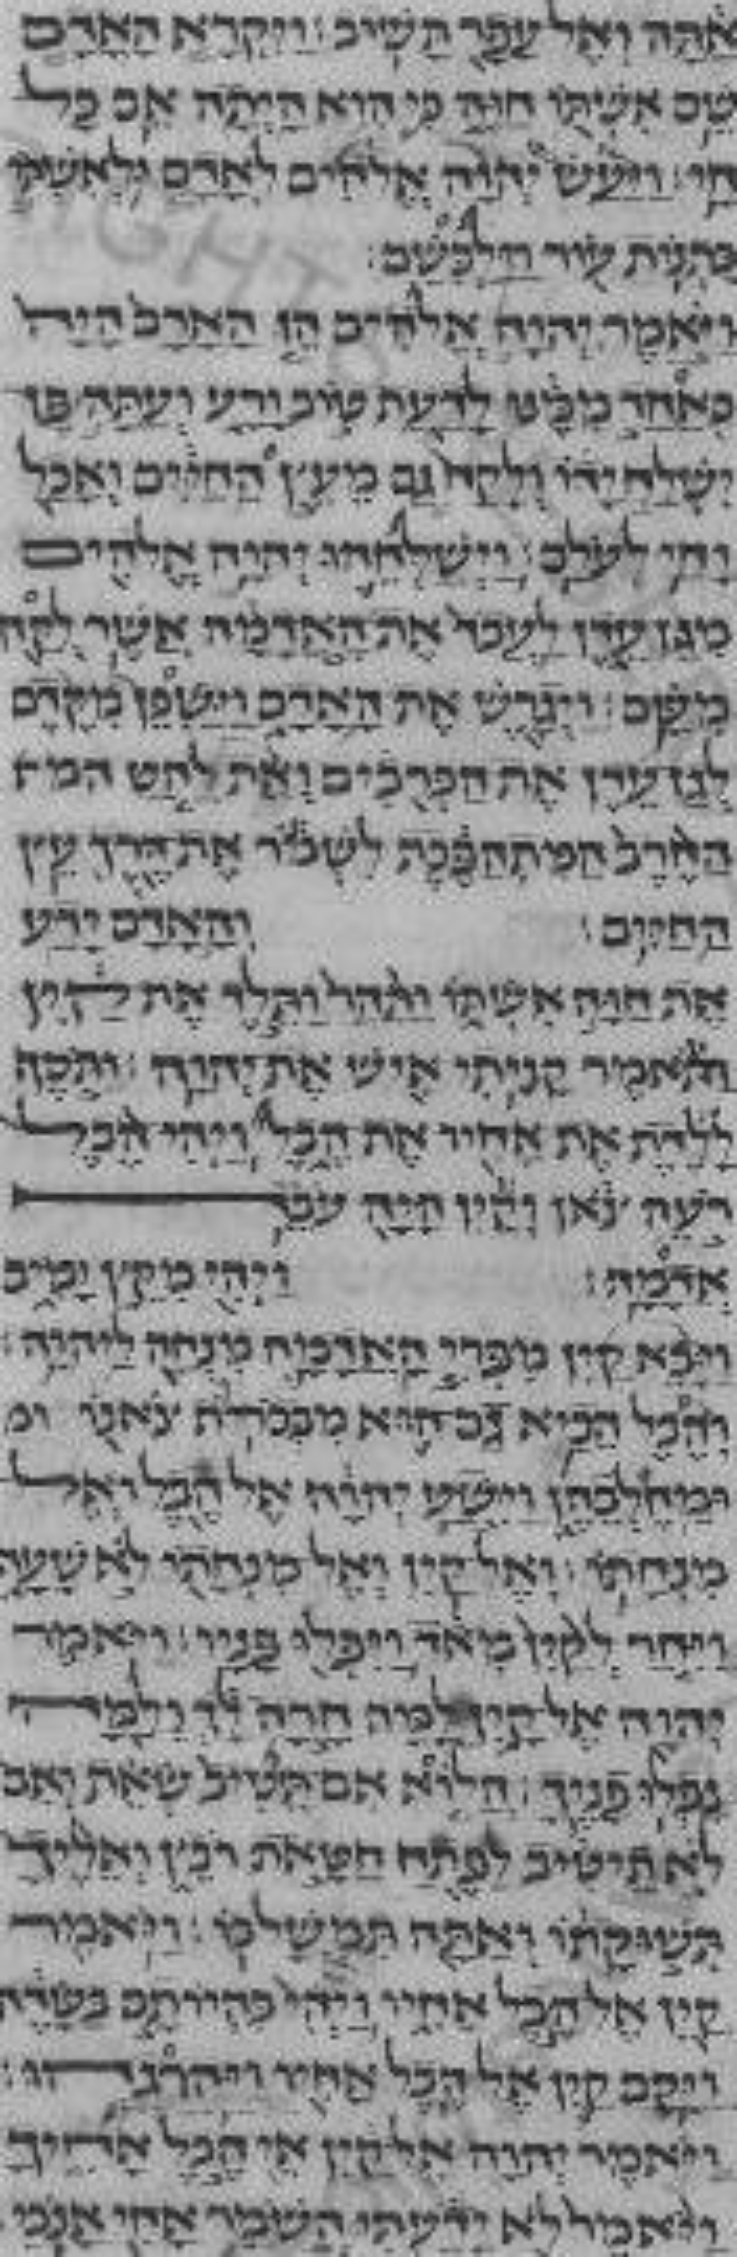 אתה ואל עפר תשוב׃ ויקרא האדם
שם אשתו חוה כי הוא היתה אם כל
חי׃ ויעש יהוה אלהים לאדם ולאשתו
כתנות עור וילבשם׃
ויאמר יהוה אלהים הן האדם היה
כאחד ממנו לדעת טוב ורע ועתה פן
ישלח ידו ולקח גם מעץ החיים ואכל
וחי לעלם׃ וישלחהו יהוה אלהים
מגן עדן לעבד את האדמה אשר לקח
משם׃ ויגרש את האדם וישכן מקדם
לגן עדן את הכרבים ואת להט
החרב המתהפכת לשמר את דרך עץ
החיים׃ והאדם ידע
את חוה אשתו ותהר ותלד את קין
ותאמר קניתי איש את יהוה׃ ותסף
ללדת את אחיו את הבל ויהי הבל
רעה צאן וקין היה עבד
אדמה׃ ויהי מקץ ימים
ויבא קין מפרי האדמה מנחה ליהוה׃
והבל הביא גם הוא מבכרות צאנו ומ
ומחלבהן וישע יהוה אל הבל ואל
מנחתו׃ ואל קין ואל מנחתו לא שעה
ויחר לקין מאד ויפלו פניו׃ ויאמר
יהוה אל קין למה חרה לך ולמה
נפלו פניך׃ הלוא אם תטיב שאת ואם
לא תיטיב לפתח חטאת רבץ ואליך
תשוקתו ואתה תמשל בו׃ ויאמר
קין אל הבל אחיו ויהי בהיותם בשדה
ויקם קין אל הבל אחיו ויהרגהו׃
ויאמר יהוה אל קין אי הבל אחיך
ויאמר לא ידעתי השמר אחי אנכי